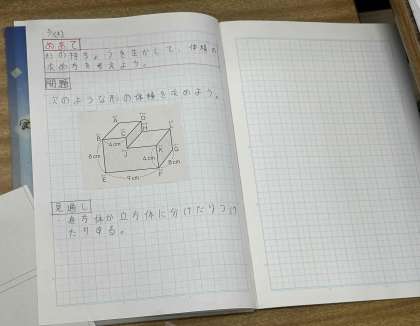 めあて
形の特ちょうを生かして、体積の
求め方を考えよう。
問題
次のような形の体積を求めよう。
A
D
B
C
H
I
4cm
J
K
G
6cm
4cm
8cm
E
F
9cm
見通し
・直方体か立方体に分けたりつけ
たりする。